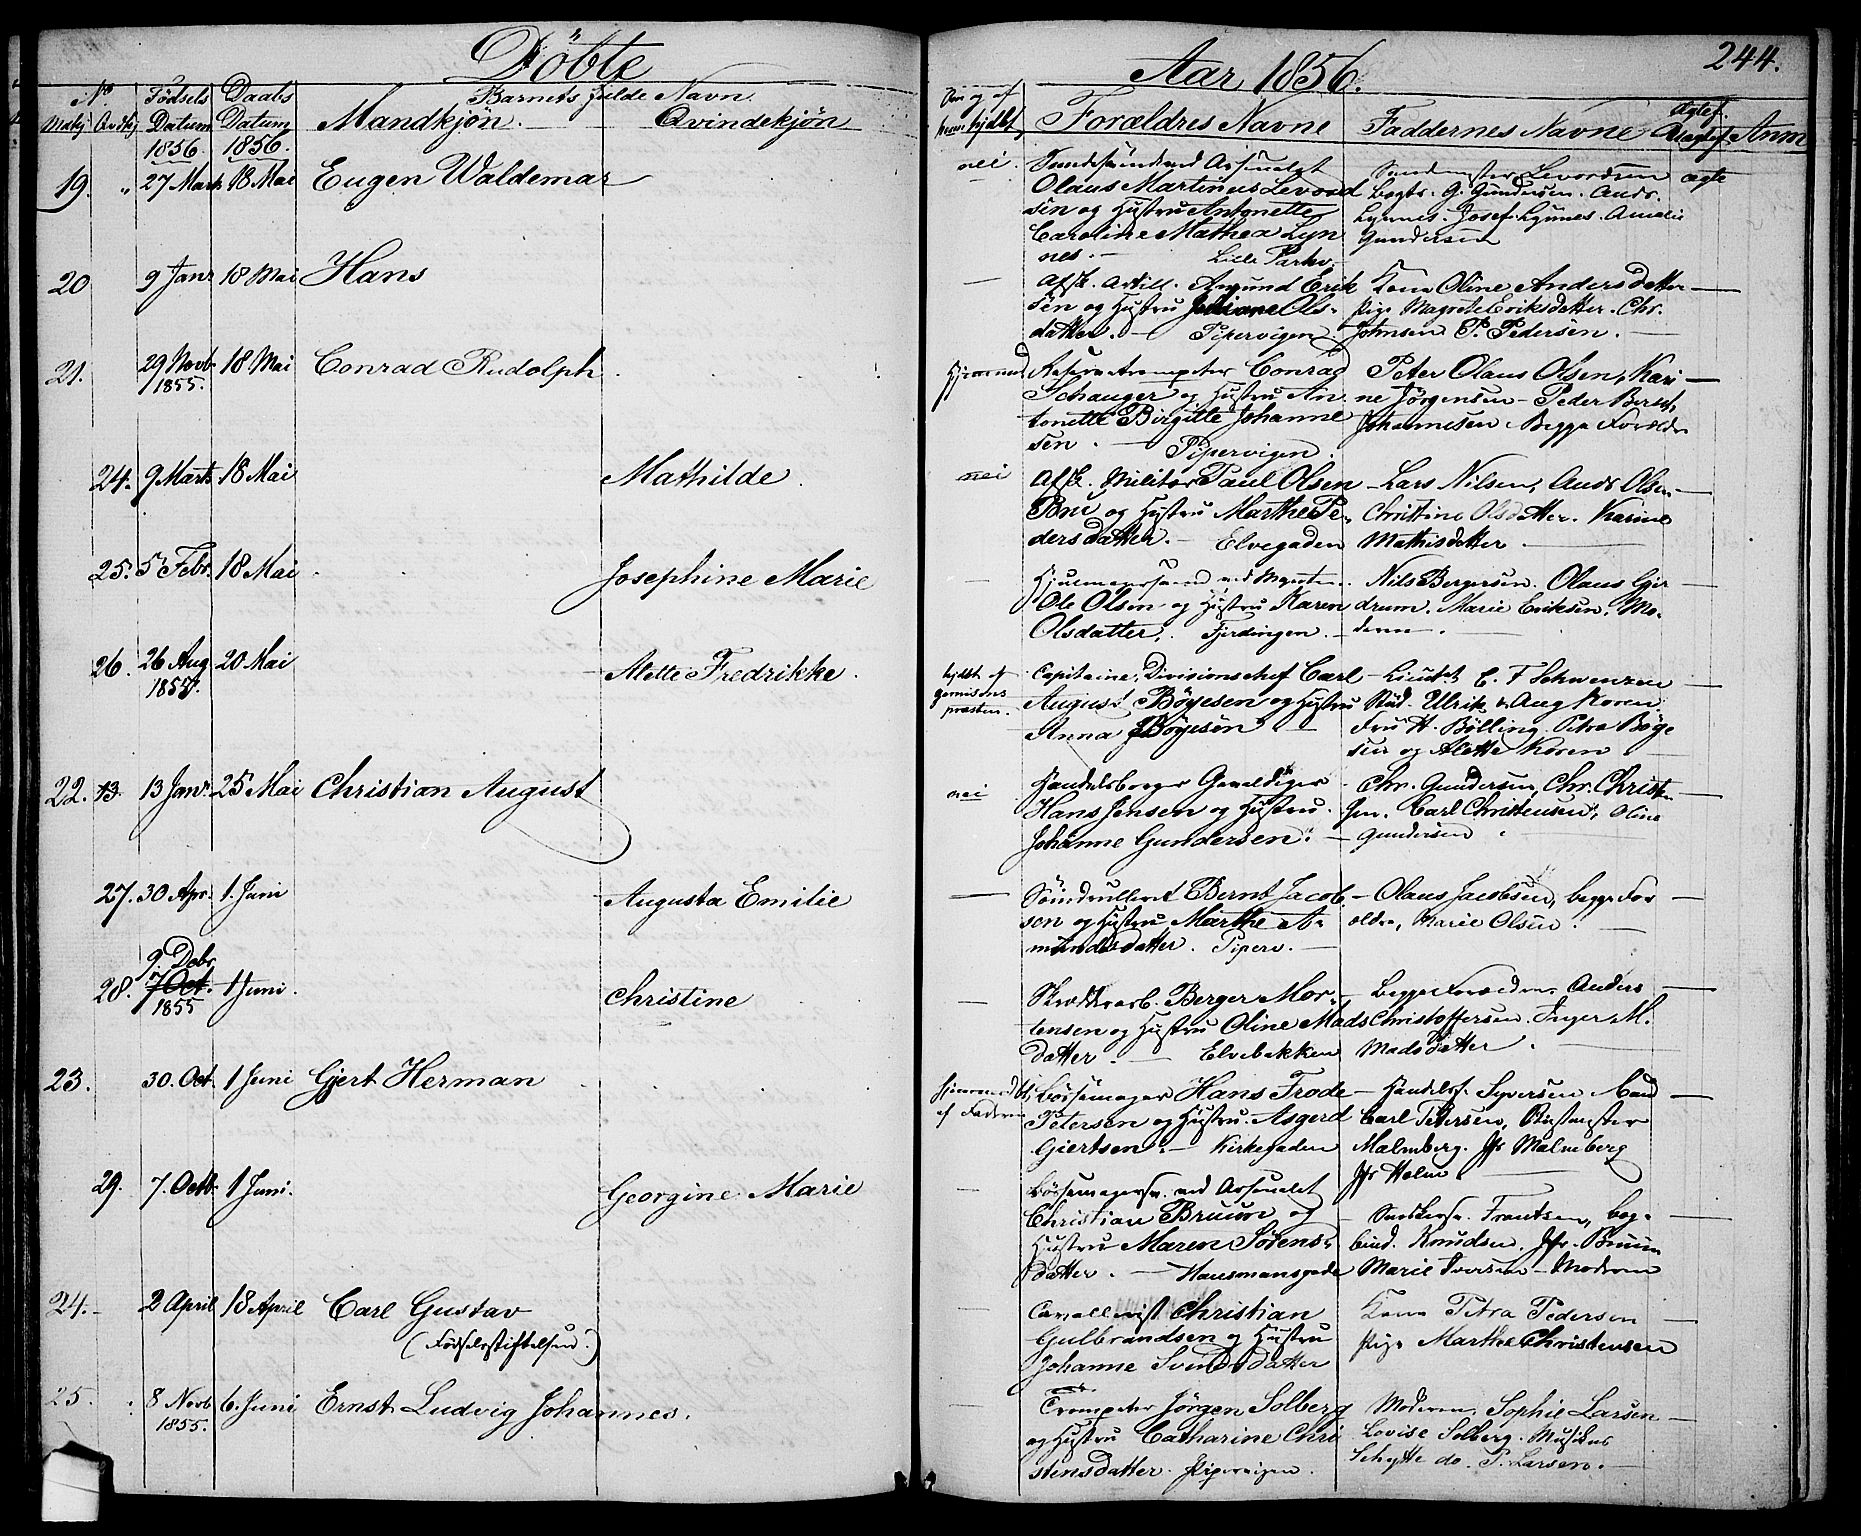 Döbte
Aar 1856.
244.
No
Mankj Qvkj
Fødsels Datum 1856.
Daabs Datum 1856.
Barnets fulde Navn
Mandkjøn. Qvindekjön
Forældres Navne
Faddernes Navne
Anm
19. " 27 Marts 18 Mai Eugen Waldemar
nei.
Olaus Martinus Levord
sen og Hustru Antonette
Caroline Mathea Lyn
nes. - Lille Parkv.
Levordsen
G. Gundersen. Andr.
Lynnes. Josef Lynnes. Amalie
Gundersen
ægte
20 9 Janr 18 Mai Hans
Afsk. Artill. Amund Erik
sen og Hustru Juliane Ols-
datter. - Pipervigen
Kone Oline Andersdatter
Pige Magrete Eriksdatter. Chr.
Johnsen P. Pedersen.
21. 29 Novb 1855. 18 Mai Conrad Rudolph
Conrad
Schauger og Hustru An
tonette Birgitte Johanne
sen. - Pipervigen.
Peter Olaus Olsen, Kari
ne Jörgensen - Peder Bernt
Johannesen. Begge Forældr.
24. 9 Marts 18 Mai Mathilde.
nei
Afsk. Militær Paul Olsen
Bru og Hustru Marthe Pe-
dersdatter. - Elvegaden
Lars Nilsen, Andr Olsen
Christine Olsdatter. Karine
Mathisdatter
25. 5 Febr. 18 Mai Josephine Marie
Ole Olsen og Hustru Karen
Olsdatter. Fjerdingen.
Nils Bergersen. Olaus Gjer
drum. Marie Eriksen. Mo-
deren.
26. 26 Aug 1855. 20 Mai Alette Fredrikke.
Capitaine, Divisionschef Carl
August Böyesen og Hustru
Anna Böyesen
Lieutnt C. F Schwenzen
Stud. Ulrik & Aug Koren
Fru H. Bölling. Petra Böye
sen og Alette Koren
22. 13. 13 Janr. 25 Mai Christian August
nei
Handelsborger Gevaldiger
Hans Jensen og Hustru.
Johanne Gundersen. -
Chr. Gundersen, Chr. Christen
sen. Carl Christensen, Oline
Gundersen
27. 30 Apr. 1. Juni Augusta Emilie
Bernt Jacob
sen og Hustru Marthe A-
mundsdatter. Piperv. -
Olaus Jacobsen, begge For
ældre, Marie Olsen.
28. 9 Debr. 7 Oct. 1855 1 Juni. Christine
Skrædderarb. Berger Mor-
tensen og Hustru Oline Mads
datter. - Elvebakken
Begge Forældrene. Anders
Christoffersen. Inger M.
Madsdatter.
23. 30. Oct. 1 Juni Gjert Herman
Bössemager Hans Frode
Petersen og Hustru. Asgerd
Gjertsen. - Kirkegaden
Handelsf. Syversen
Carl Petersen,
Malmberg. Jfr Malmberg
Jfr Holm
29. 7. Octb. 1 Juni. Georgine Marie
Bössemagersv. ved Arsenalet
Christian Bruun og
Hustru Maren Sörens-
datter. - Hausmansgade
Snedkersv. Frantsen, bog-
bind. Knudsen. Jfr. Bruun
Marie Iversen - Moderen
24. - 2 April 18 April Carl Gustav
(Fødselsstiftelsen.)
Cavallerist Christian
Gulbrandsen og Hustru
Johanne Svendsdatter
Kone Petra Pedersen
Pige Marthe Christensen
25. 8 Novb 1855. 6. Juni Ernst Ludvig Johannes.
Trompeter Jörgen Solberg
og Hustru Catharine Chri
stensdatter. Pipervigen.
Moderen, Sophie Larsen
Lovise Solberg. Musikus
Schytte do. P. Larsen. -